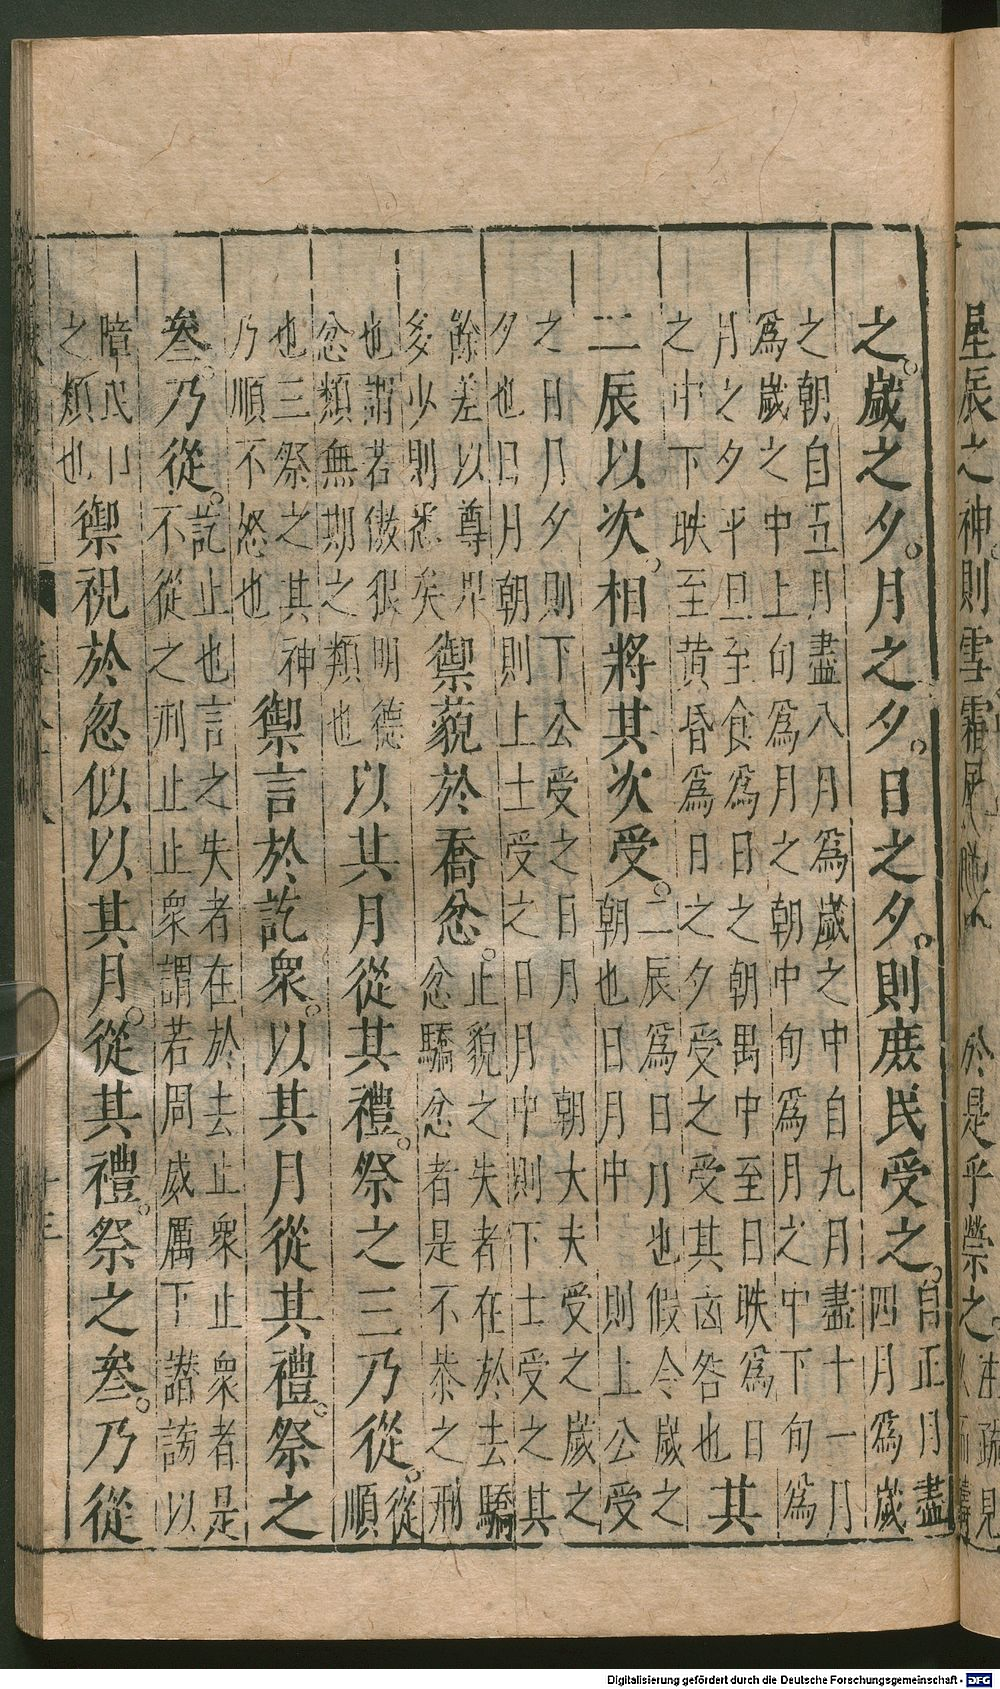 星辰之神。則雪霜風
於是乎禜之。
注疏見
之。歲之夕。月之夕。日之夕。則庶民受之。自正月盡
四月爲歲
之朝自五月盡八月爲歲之中自九月盡十一月
爲歲之中上旬爲月之朝中旬爲月之中下旬爲
月之夕平旦至食爲日之朝禺中至日昳爲日
之中下昳至黄昏爲日之夕受之受其凶咎也
其
二辰以次相將其次受。二辰爲日月也假令歲之
朝也日月中則上公受
之日月夕則下公受之日月朝大夫受之歲之
夕也日月朝則上士受之日月中則下士受之其
餘差以尊卑
多少則悉矣
禦藐於喬忿。止貌之失者在於去驕
忿驕忿者是不恭之刑
也謂若傲狠明德
忿類無期之類也
以其月從其禮。祭之三乃從。從
順
也三祭之其神
乃順不怒也
禦言於訖衆。以其月從其禮。祭之
叄。乃從。訖止也言之失者在於去止衆止衆者是
不從之刑止止衆謂若周威厲下譛謗以
障民口
之類也
禦祝於忽似以其月。從其禮。祭之叄。乃從
十三
Digitalisierung gefördert durch die Deutsche Forschungsgemeinschaft - DFG